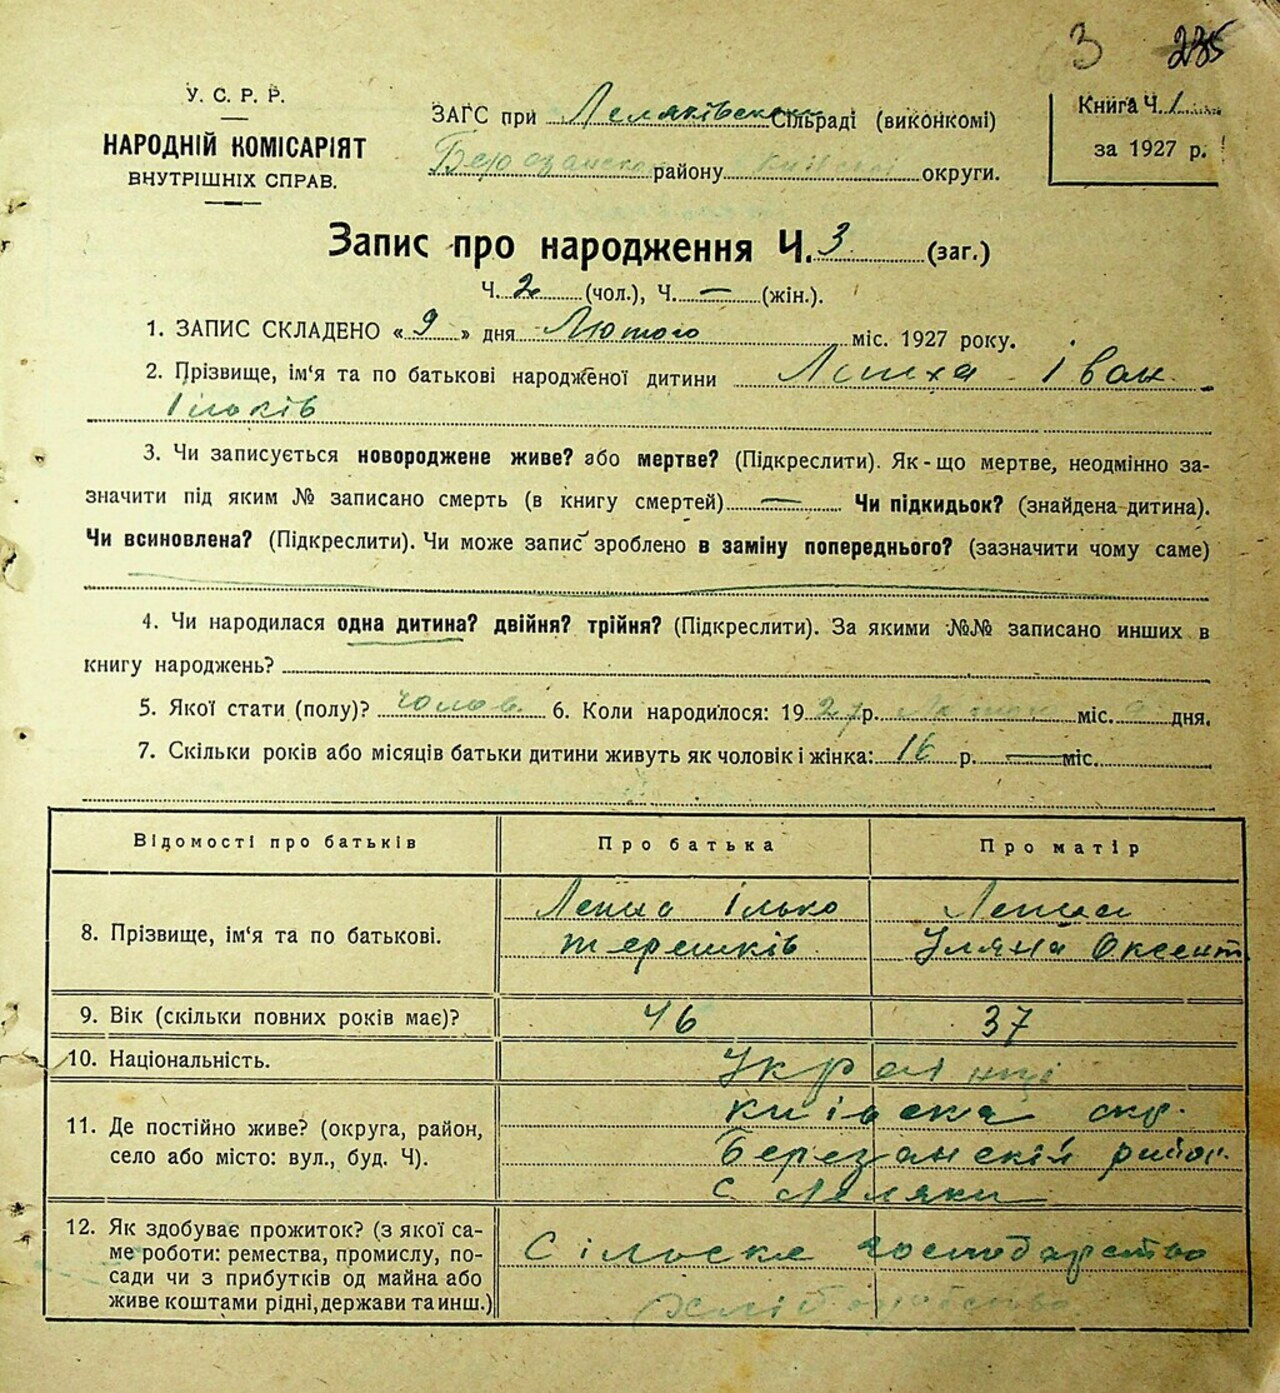 3 235
У. С. Р. Р.
НАРОДНІЙ КОМІСАРІЯТ
ВНУТРІШНІХ СПРАВ.
ЗАГС при Леляківськ Сільраді (виконкомі)
району Київської округи.
Книга Ч. 1
за 1927 р.
Запис про народження Ч. 3 (заг.)
Ч. 2 (чол.), Ч. — (жін.).
1. ЗАПИС СКЛАДЕНО « 9 » дня Лютого міс. 1927 року.
2. Прізвище, ім'я та по батькові народженої дитини Іван
Ільків
3. Чи записується новороджене живе? або мертве? (Підкреслити). Як-що мертве, неодмінно за-
значити під яким № записано смерть (в книгу смертей) — Чи підкидьок? (знайдена дитина).
Чи всиновлена? (Підкреслити). Чи може запис зроблено в заміну попереднього? (зазначити чому саме)
4. Чи народилася одна дитина? двійня? трійня? (Підкреслити). За якими №№ записано инших в
книгу народжень?
5. Якої стати (полу)? чолов. 6. Коли народилося: 19 27 р. міс. дня.
7. Скільки років або місяців батьки дитини живуть як чоловік і жінка: 16 р. — міс.
Відомості про батьків Про батька Про матір
8. Прізвище, ім'я та по батькові. Ілько
терешків Уляна Оксент
9. Вік (скільки повних років має)? 46 37
10. Національність. Українці
11. Де постійно живе? (округа, район,
село або місто: вул., буд. Ч). київска окр.
Березанский район
с Леляки
12. Як здобуває прожиток? (з якої са-
ме роботи: ремества, промислу, по-
сади чи з прибутків од майна або
живе коштами рідні, держави та инш.)
Сільске господарство
хліборобство